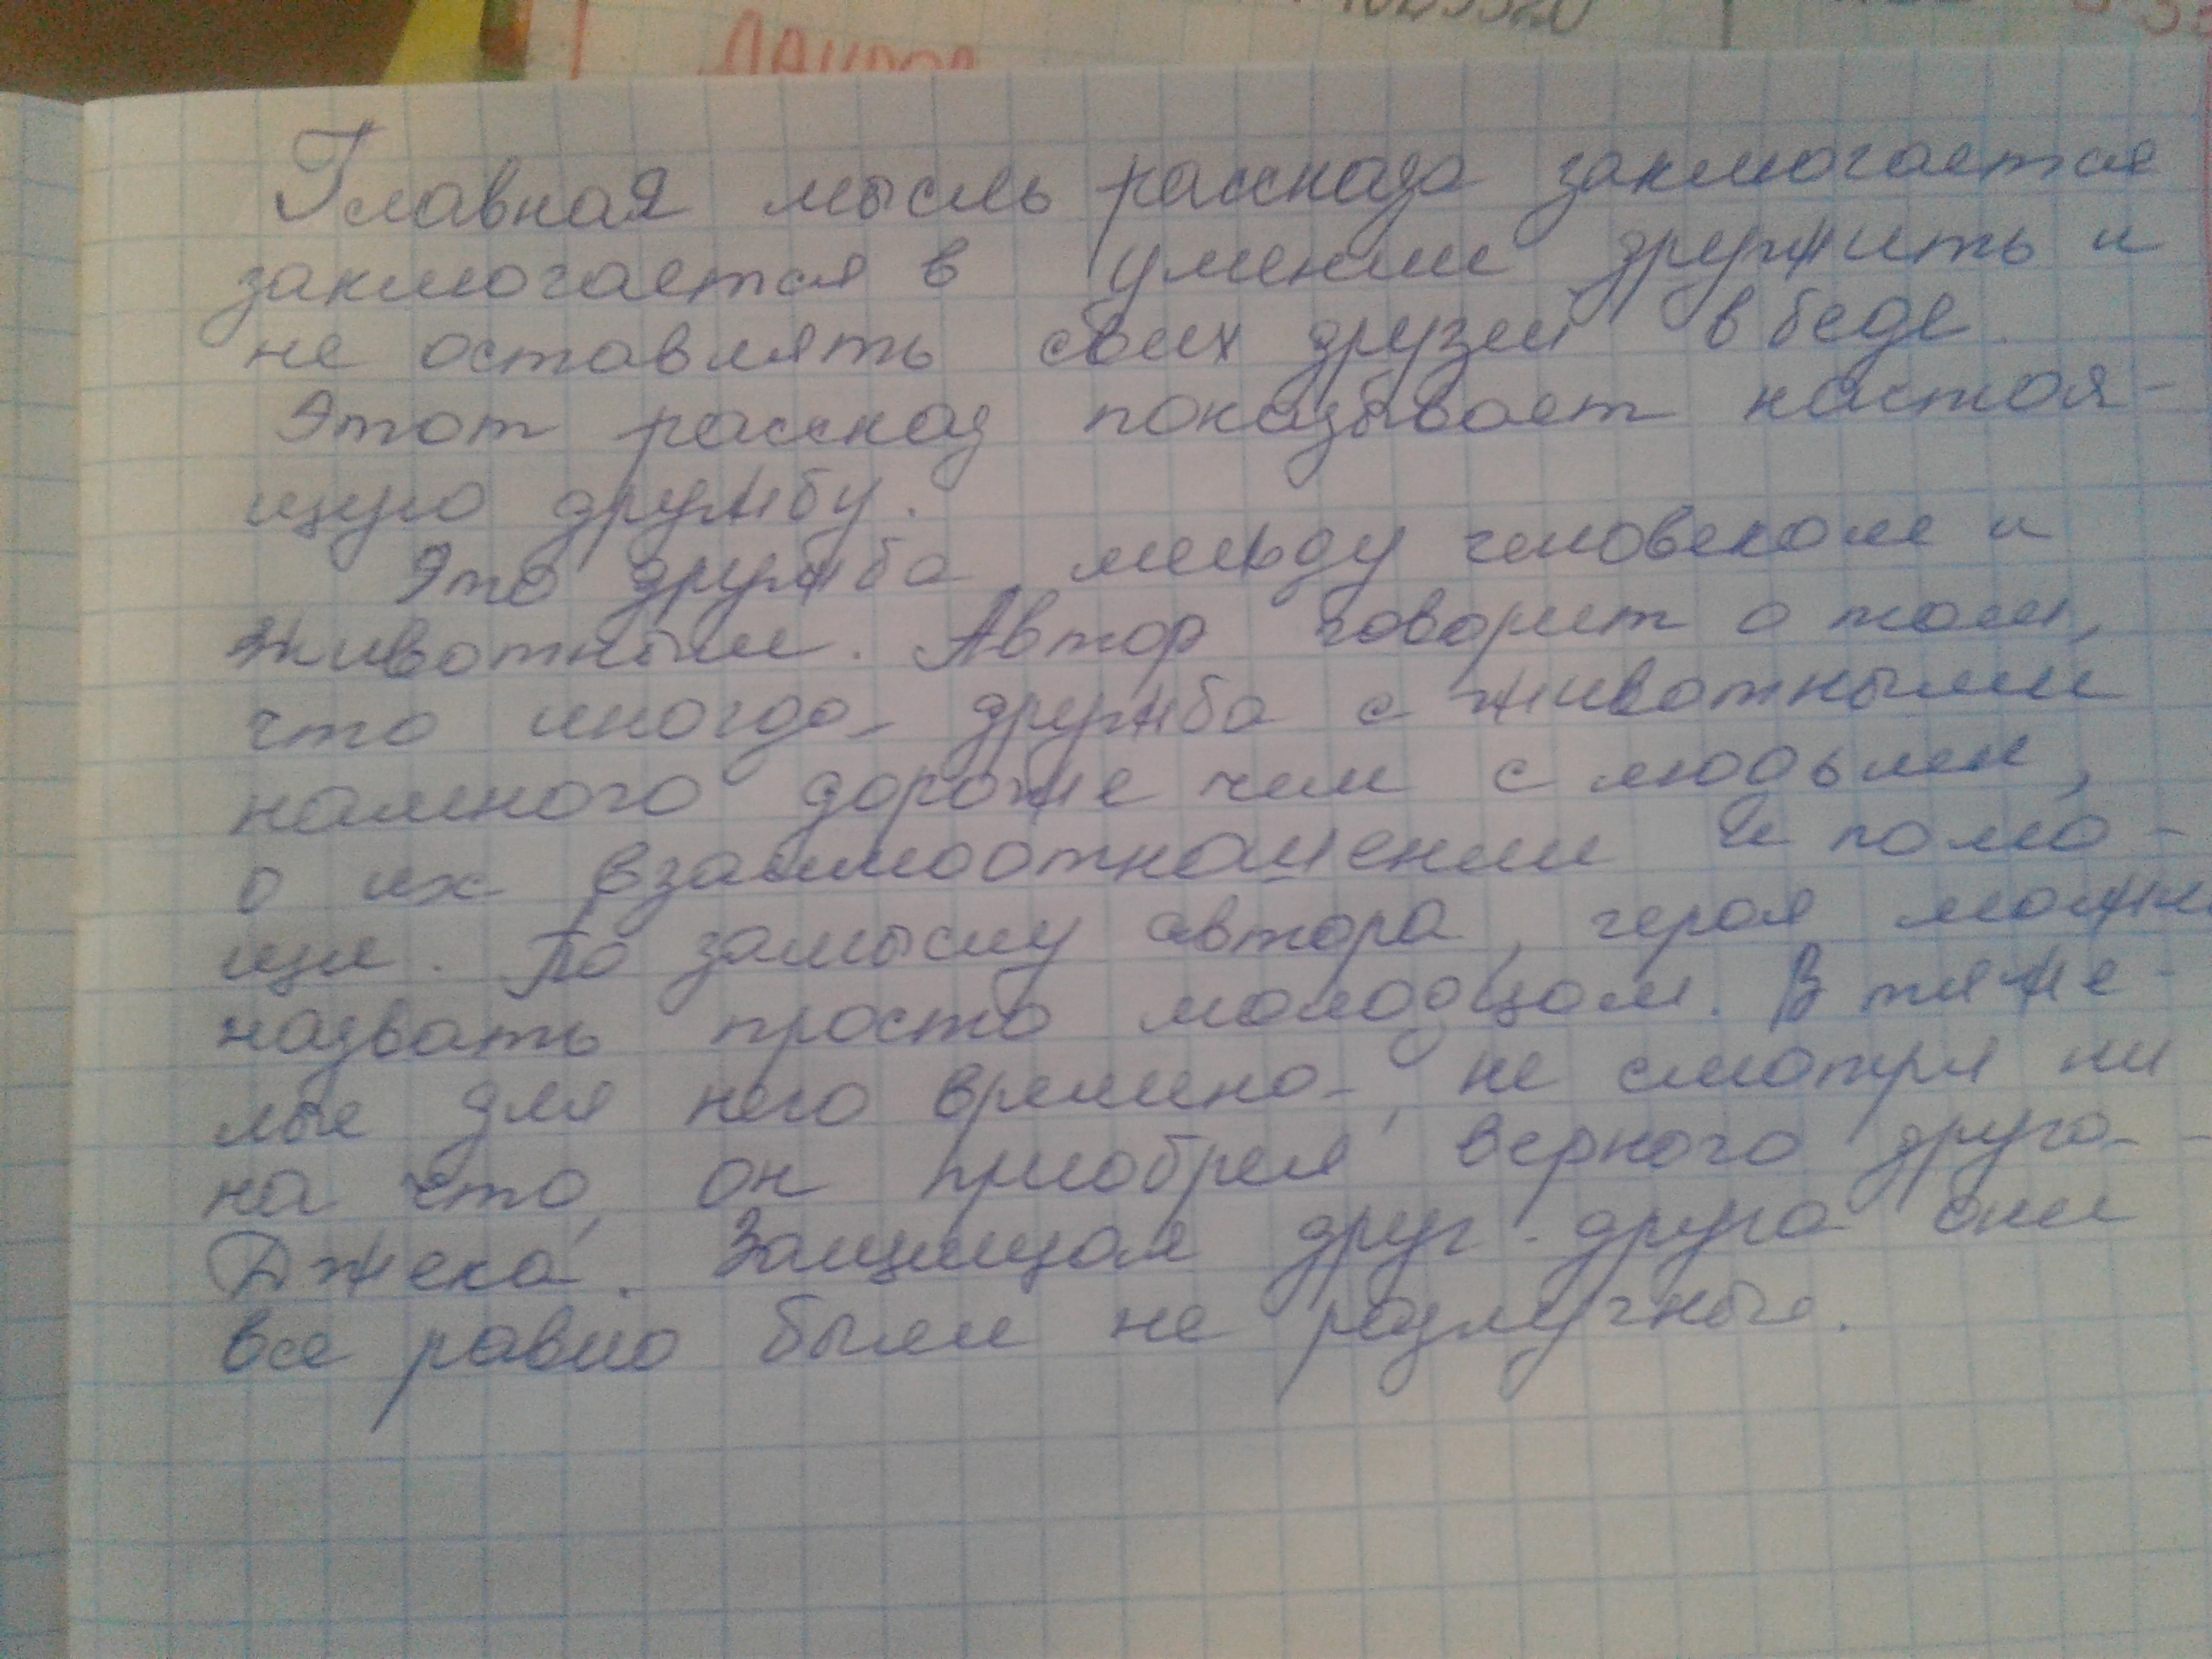 Главная мысль рассказа заключается
заключается в умении дружить и
не оставлять своих друзей в беде.
Этот рассказ показывает настоя-
щую дружбу.
Это дружба между человеком и
животным. Автор говорит о том,
что иногда дружба с животными
намного дороже чем с людьми,
о их взаимоотношении и помо-
щи. По замыслу автора, героя можн
назвать просто молодцом. В тяже-
лые для него времино, не смотря ни
на что, он приобрел верного друга-
Джека. Защищая друг-друга они
все равно были не разлучные.